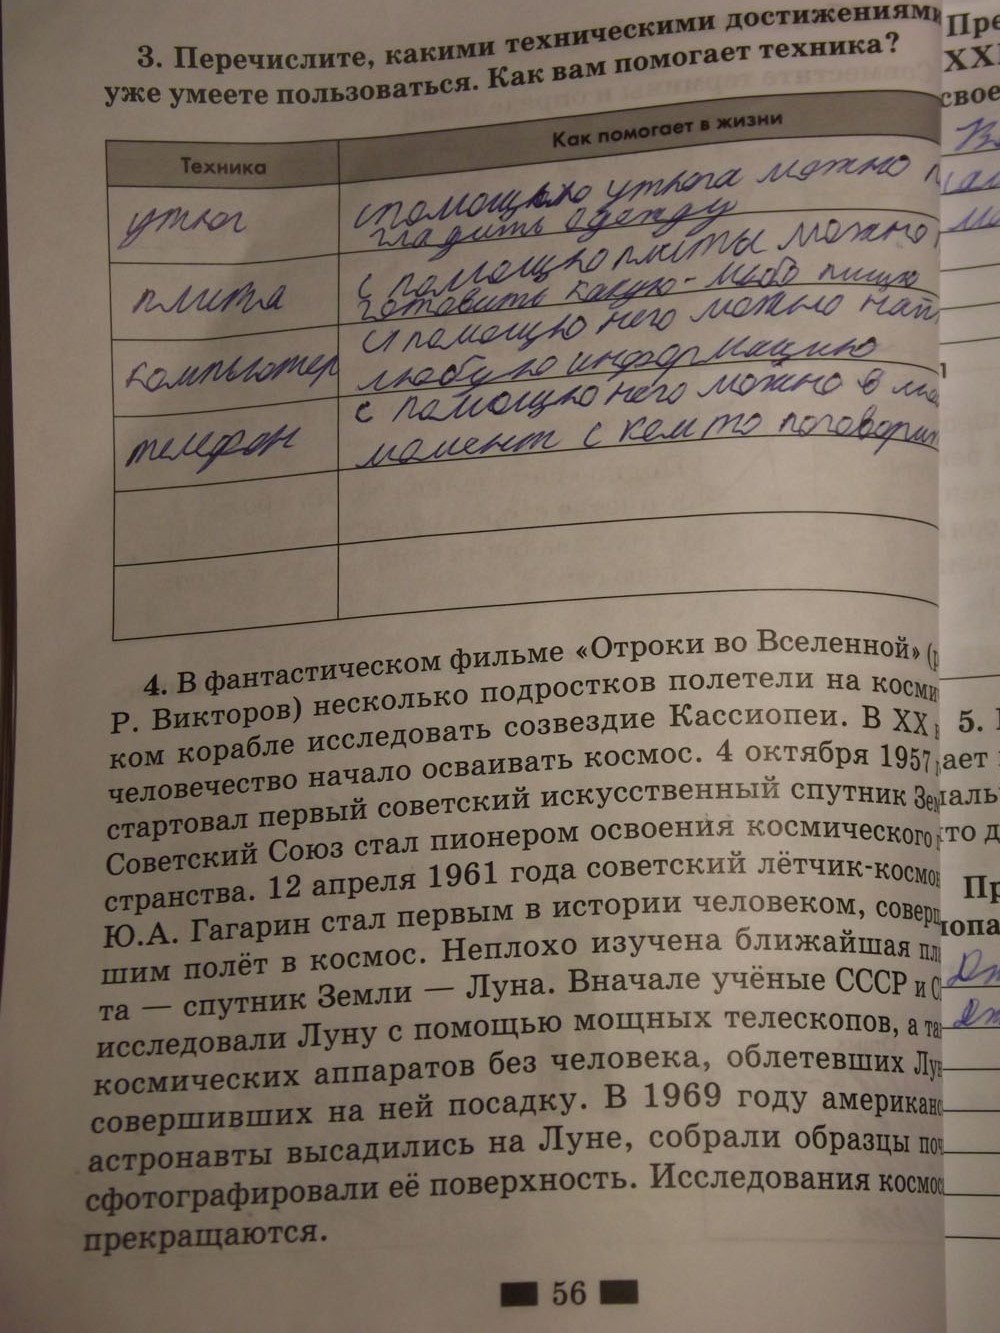 3. Перечислите, какими техническими достижениями
уже умеете пользоваться. Как вам помогает техника?
Техника
Как помогает в жизни
утюг
спомощью утюга можно
гладить одежду
плита
с помощю плиты можно
готовить какую-либо пищю
компьютер
с помощю него можно
любую информацию
телефон
с помощю него можно в
момент с кем то поговорит
4. В фантастическом фильме «Отроки во Вселенной»
Р. Викторов) несколько подростков полетели на косми
ком корабле исследовать созвездие Кассиопеи. В XX
человечество начало осваивать космос. 4 октября 1957
стартовал первый советский искусственный спутник Зем
Советский Союз стал пионером освоения космического
странства. 12 апреля 1961 года советский лётчик-космон
Ю.А. Гагарин стал первым в истории человеком, соверш
шим полёт в космос. Неплохо изучена ближайшая пла
та — спутник Земли — Луна. Вначале учёные СССР и С
исследовали Луну с помощью мощных телескопов, а так
космических аппаратов без человека, облетевших Лун
совершивших на ней посадку. В 1969 году американс
астронавты высадились на Луне, собрали образцы поч
сфотографировали её поверхность. Исследования космос
прекращаются.
56
Пре
XXI
свое
5.
ает
аль
то д
Пр
лопа